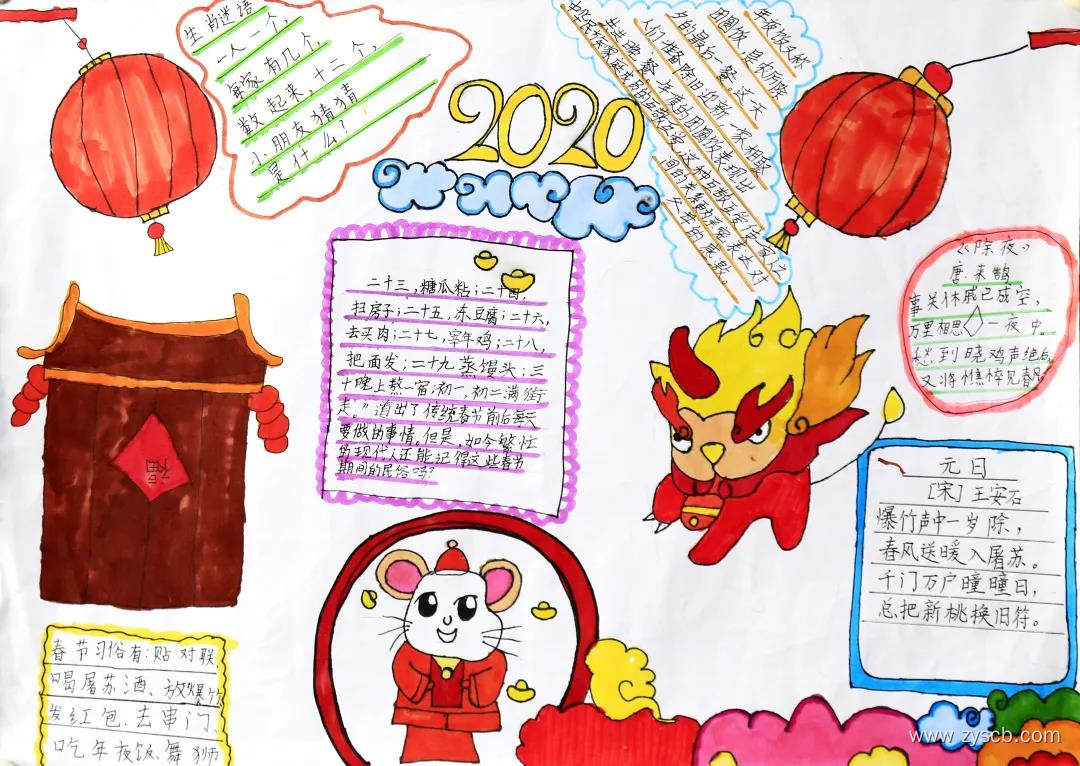 生肖迷语
一人一个,
每家有几个,
数起来,十二个,
小朋友猜猜
是什么?
2020
年夜饭又称
团圆饭,是农历除
夕的最后一餐。这天
人们准备除旧迎新,一家相聚
共进晚餐。年夜的团圆饭表现出
中华民族家庭成员的互敬互爱,这种互敬互爱使一家人之
间的关系更为亲密
父母的感激。
二十三,糖瓜粘;二十四,
扫房子;二十五,冻豆腐;二十六,
去买肉;二十七,宰年鸡;二十八,
把面发;二十九蒸馒头;三
十晚上熬一宿;初一、初二满街
走。"道出了传统春节前后每天
要做的事情。但是,如今繁忙
的现代人还能记得这些春节
期间的民俗吗?
《除夜》
唐 来鹄
事关休戚已成空,
万里相思一夜中
愁到晓鸡声绝后,
又将憔悴见春
元日
[宋]王安石
爆竹声中一岁除,
春风送暖入屠苏。
千门万户瞳瞳日,
总把新桃换旧符。
福
春节习俗有:贴对联
喝屠苏酒、放爆竹
发红包、去串门、
吃年夜饭、舞狮
www.zyscb.com